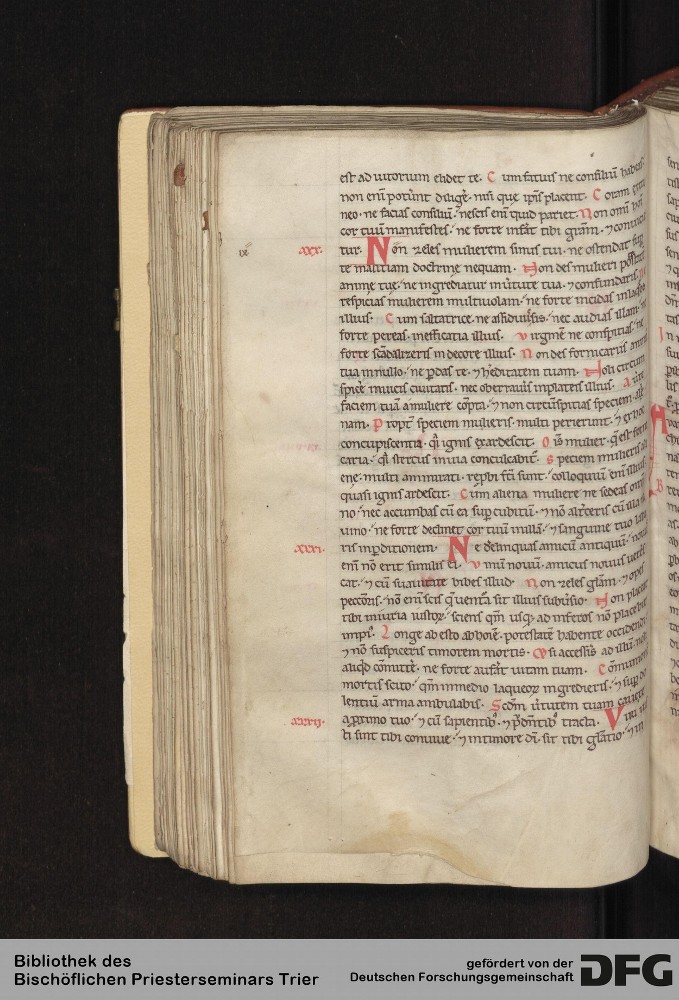 est ad iutorium elidet te. Cum fatuis ne consiliũ habeas
non enĩ poterũt diligẽ nisi que ipsis placent. Coram extra
neo ne facias consiliũ nescis enĩ quid pariet. Non omĩ homĩ
cor tuũ manifestes ne forte inferat tibi gratĩam et conuicie
ix
XXX.
tur. Non zeles mulierem sinus tui ne ostendat sup
te malitiam doctrine nequam. Non des mulieri potestatẽ
anime tue ne ingrediatur in uirtute tua et confundaris. Ne
respicias mulierem multiuolam ne forte incidas in laqueos
illius. Cum saltatrice ne assiduus sis nec audias illam ne
forte pereas in efficatia illius. Virginẽ ne conspitias ne
forte scãdalizeris in decore illius. Non des fornicariis animã
tuã in nullo ne perdas te et hereditatem tuam. Noli circum
spicẽ in uicis ciuitatis nec oberraueris in plateis illius. Auerte
faciem tuã a muliere cõpta et non circũspitias speciem alie
nam. Propter speciem mulieris multi perierunt et ex hoc
concupiscentia quasi ignis exardescit. Omnis mulier que est forni
caria quasi stercus in uia conculcabitur. Speciem mulieris ali
ene multi ammirati reprobi facti sunt colloquiũ enĩ illius
quasi ignis ardescit. Cum aliena muliere ne sedeas omni
no nec accumbas cũ ea super cubitũ et nõ alterceris cũ illa in
uino ne forte declinet cor tuũ in illã et sanguine tuo laba
XXXI.
ris in perditionem. Ne derelinquas amicũ antiquũ nouus
enĩ nõ erit similis ei. Vinũ nouũ amicus nouus ueteras
cat et cũ suauitate bibes illud. Non zeles gloriãm et opes
peccatoris nõ enĩ scis que uentura sit illius subuersio. Non placeat
tibi iniuria iustoꝝ sciens qm̃ usqꝫ ad inferos nõ placebit
impius. Longe abesto ab hoĩe potestatẽ habente occidendi
et nõ suspiceris timorem mortis. Et si accessis ad illũ noli
aliqd cõmittẽ ne forte auferat uitam tuam. Cõmunionẽ
mortis scito qm̃ in medio laqueoꝝ ingredieris et super do
lentiũ arma ambulabis. Scdm̃ uirtutem tuam caue te
XXXII.
a proximo tuo et cũ sapientibꝫ et prudentibꝫ tracta. Viri ius
ti sint tibi conuiue et in timore dĩ sit tibi glatio et in
Bibliothek des
Bischöflichen Priesterseminars Trier
gefördert von der
Deutschen Forschungsgemeinschaft
DFG